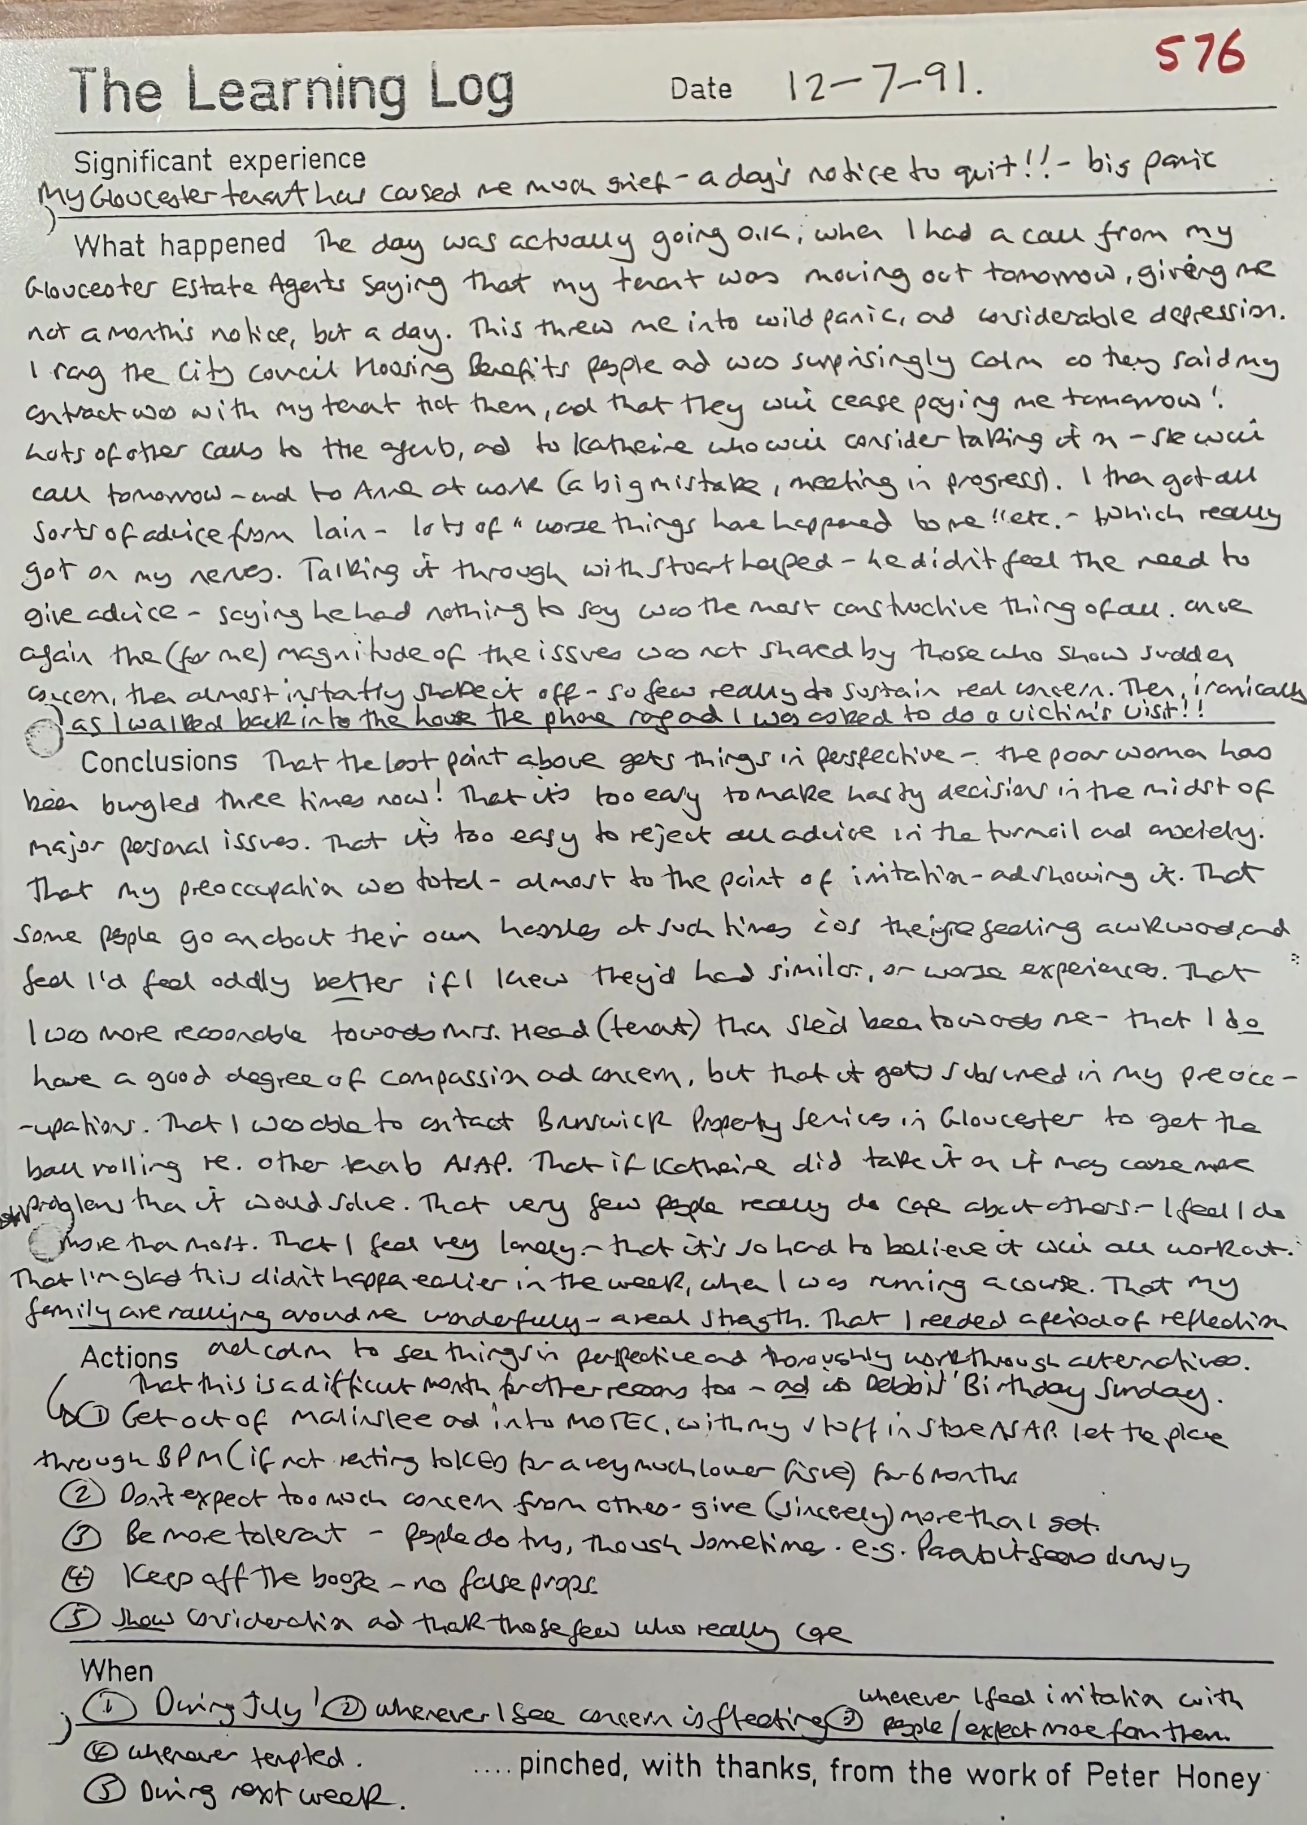 576
The Learning Log Date 12-7-91.
Significant experience
My Gloucester tenant has caused me much grief - a day's notice to quit!! - big panic
What happened The day was actually going o.k, when I had a call from my
Gloucester Estate Agents saying that my tenant was moving out tomorrow, giving me
not a month's notice, but a day. This threw me into wild panic, and considerable depression.
I rang the City Council Housing Benefits people and was surprisingly calm as they said my
contract was with my tenant not them, and that they will cease paying me tomorrow!
Lots of other calls to the agents, and to Katherine who will consider taking it on - she will
call tomorrow - and to Anne at work (a big mistake, meeting in progress). I then got all
sorts of advice from Iain - lots of "worse things have happened to me" etc. - which really
got on my nerves. Talking it through with Stuart helped - he didn't feel the need to
give advice - saying he had nothing to say was the most constructive thing of all. Once
again the (for me) magnitude of the issues was not shared by those who show sudden
concern, then almost instantly shake it off - so few really do sustain real concern. Then, ironically
as I walked back into the house the phone rang and I was asked to do a victim's visit!!
Conclusions That the last point above gets things in perspective - the poor woman has
been burgled three times now! That it's too easy to make hasty decisions in the midst of
major personal issues. That it's too easy to reject all advice in the turmoil and anxiety.
That my preoccupation was total - almost to the point of irritation - and showing it. That
some people go on about their own hassles at such times cos they're feeling awkward, and
feel I'd feel oddly better if I knew they'd had similar, or worse experiences. That
I was more reasonable towards Mrs. Head (tenant) than she'd been towards me - that I do
have a good degree of compassion and concern, but that it gets subsumed in my preocc-
-upations. That I was able to contact Brunswick Property Services in Gloucester to get the
ball rolling re. other tenants ASAP. That if Katherine did take it on it may cause more
problems than it would solve. That very few people really do care about others - I feel I do
more than most. That I feel very lonely - that it's so hard to believe it will all work out.
That I'm glad this didn't happen earlier in the week, when I was running a course. That my
family are rallying around me wonderfully - a real strength. That I needed a period of reflection
Actions and calm to see things in perspective and thoroughly work through alternatives.
That this is a difficult month for other reasons too - and it's Debbi's' Birthday Sunday.
① Get out of Malinslee and into MOTEC, with my stuff in store ASAP. Let the place
through BPM (if not renting to for a very much lower ) for 6 months
② Don't expect too much concern from others - give (sincerely) more than I get.
③ Be more tolerant - people do try, though sometimes. e.g. Pa a bit
④ Keep off the booze - no false props
⑤ Show consideration and thank those few who really care
When
① During July! ② whenever I see concern is fleeting ③ whenever I feel irritation with
people / expect more from them.
④ whenever tempted.
⑤ During next week.
.... pinched, with thanks, from the work of Peter Honey